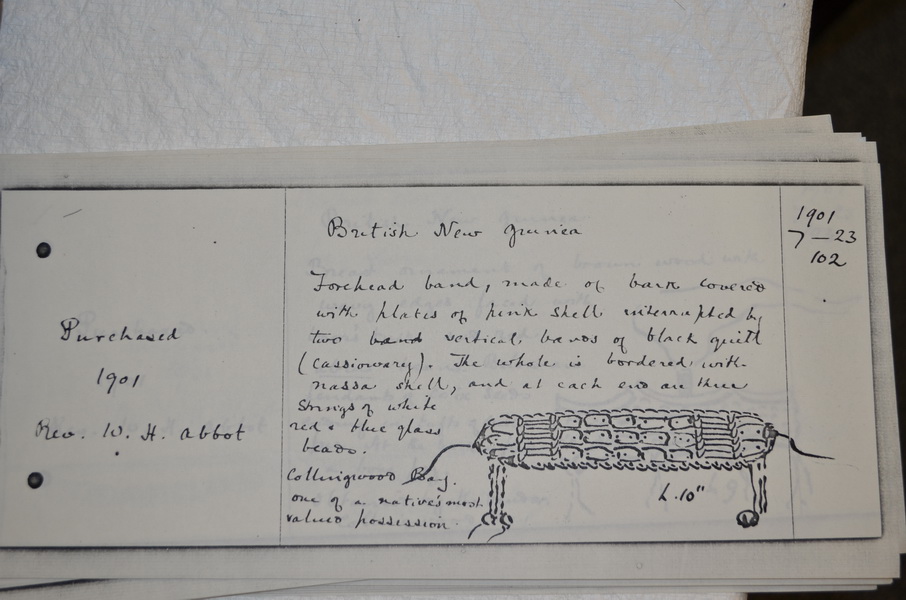 Purchased
1901
Rev. W. H. Abbot
British New Guinea
Forehead band, made of bark covered
with plates of pink shell interrupted by
two band vertical, bands of black quill
(cassiowary). The whole is bordered with
nassa shell, and at each end are three
strings of white
red & blue glass
beads.
Collingwood Bay.
one of a native's most
valued possession.
L. 10"
1901
7-23
102